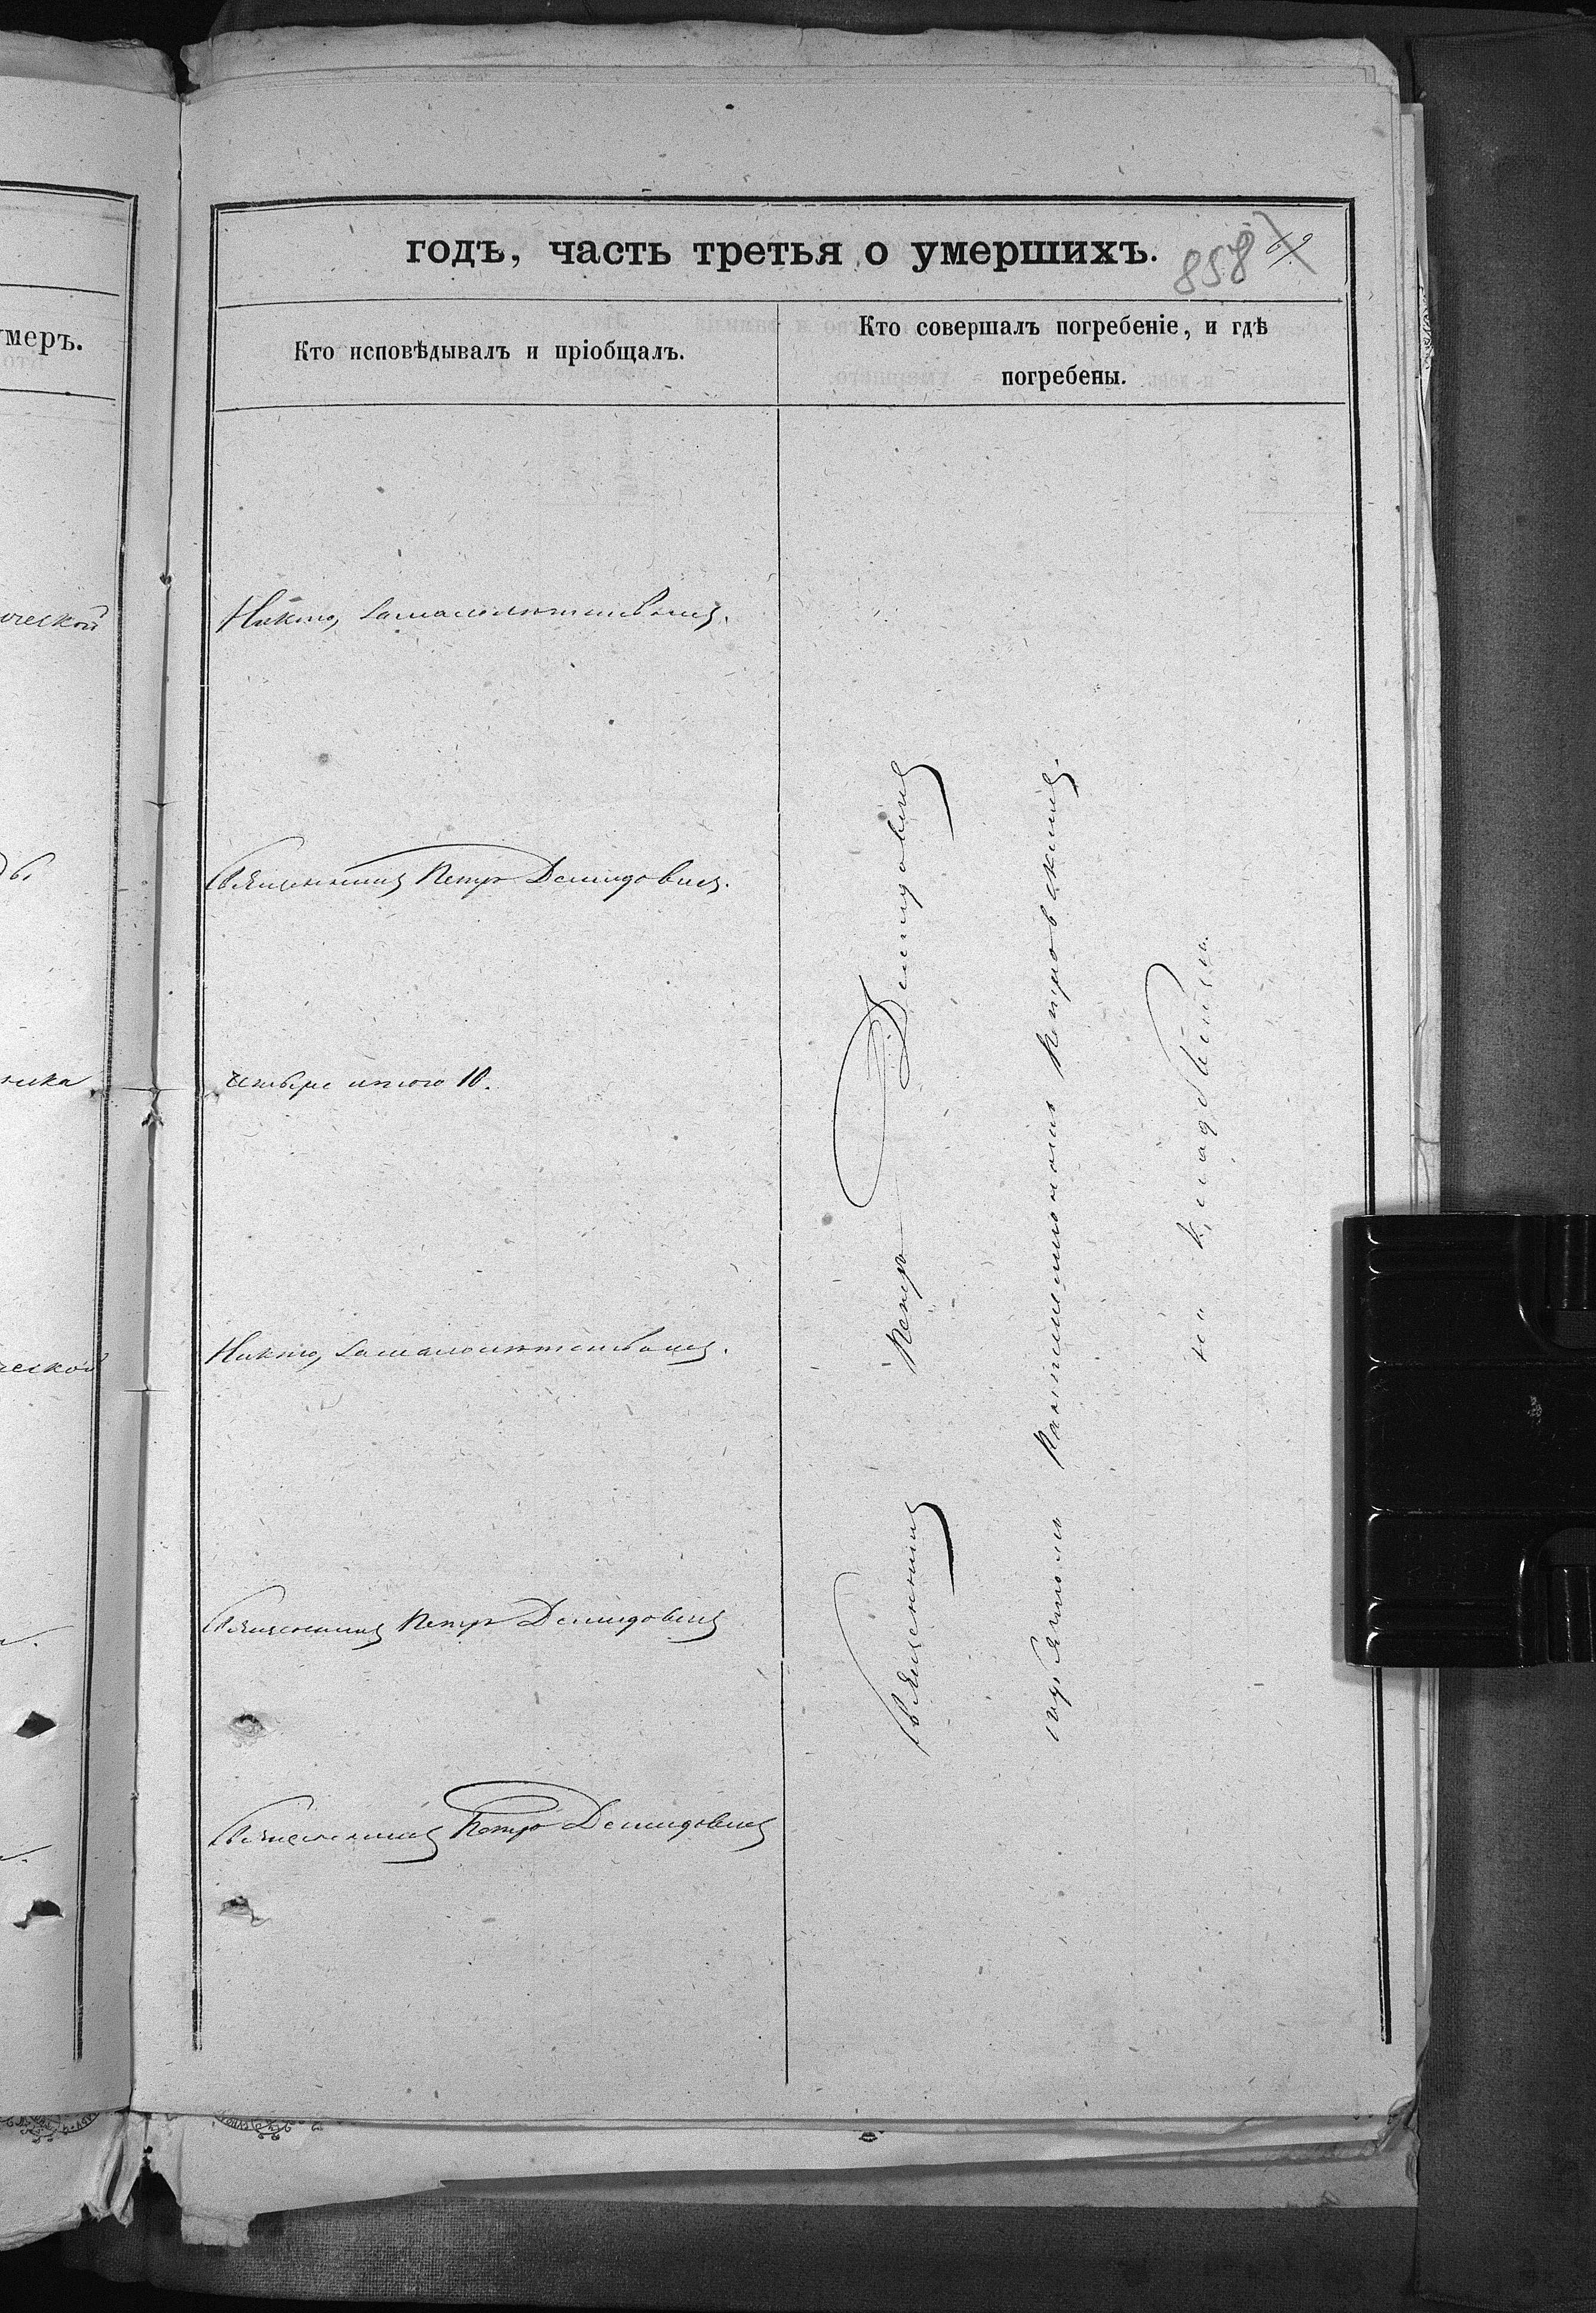 умеръ.
ческой
ника
ческой
годъ, часть третья о умершихъ. 858
Кто исповѣдывалъ и пріобщалъ.
Кто совершалъ погребеніе, и гдѣ
погребены.
Никто, за малолѣтствомъ.
Священникъ Петръ Демидовичъ.
итого 10.
Никто, за малолѣтствомъ.
Священникъ Петръ Демидовичъ
Священникъ Петръ Демидовичъ
Священникъ Петръ Демидовичъ
на кладбищѣ.